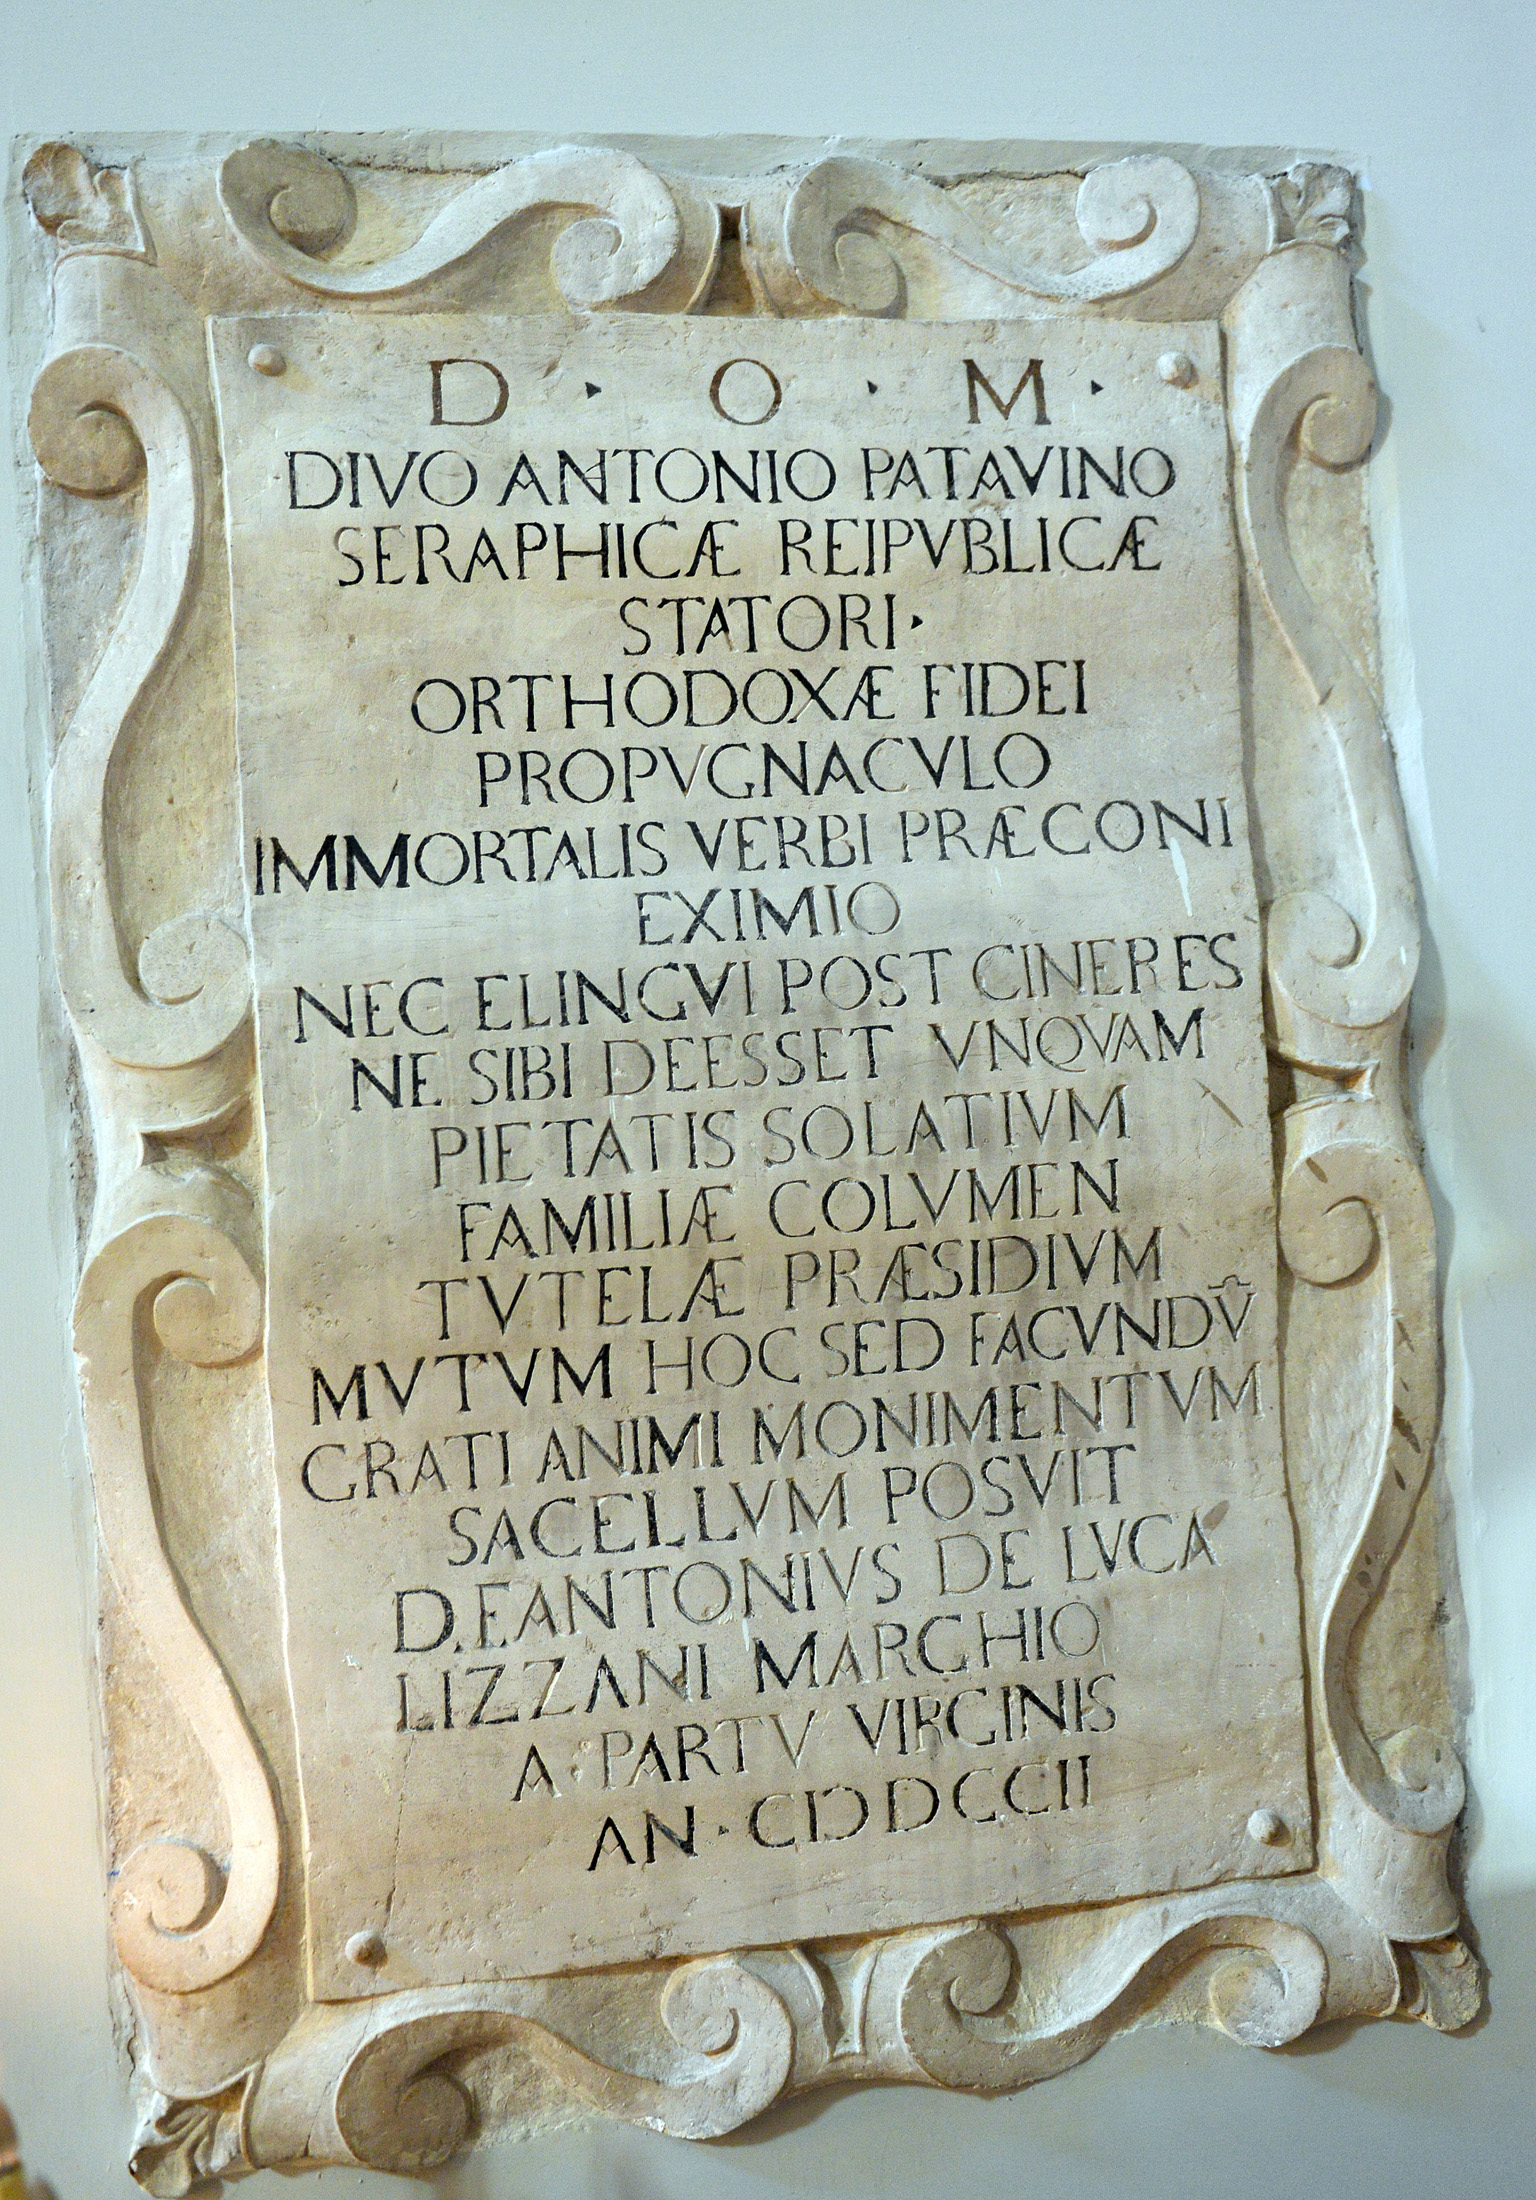 D · O · M ·
DIVO ANTONIO PATAVINO
SERAPHICÆ REIPVBLICÆ
STATORI·
ORTHODOXÆ FIDEI
PROPVGNACVLO
IMMORTALIS VERBI PRÆCONI
EXIMIO
NEC ELINGVI POST CINERES
NE SIBI DEESSET VNQVAM
PIETATIS SOLATIVM
FAMILIÆ COLVMEN
TVTELÆ PRÆSIDIVM
MVTVM HOC SED FACVNDṼ
GRATI ANIMI MONIMENTVM
SACELLVM POSVIT
D. FANTONIVS DE LVCA
LIZZANI MARCHIO
A · PARTV VIRGINIS
AN · CIƆDCCII